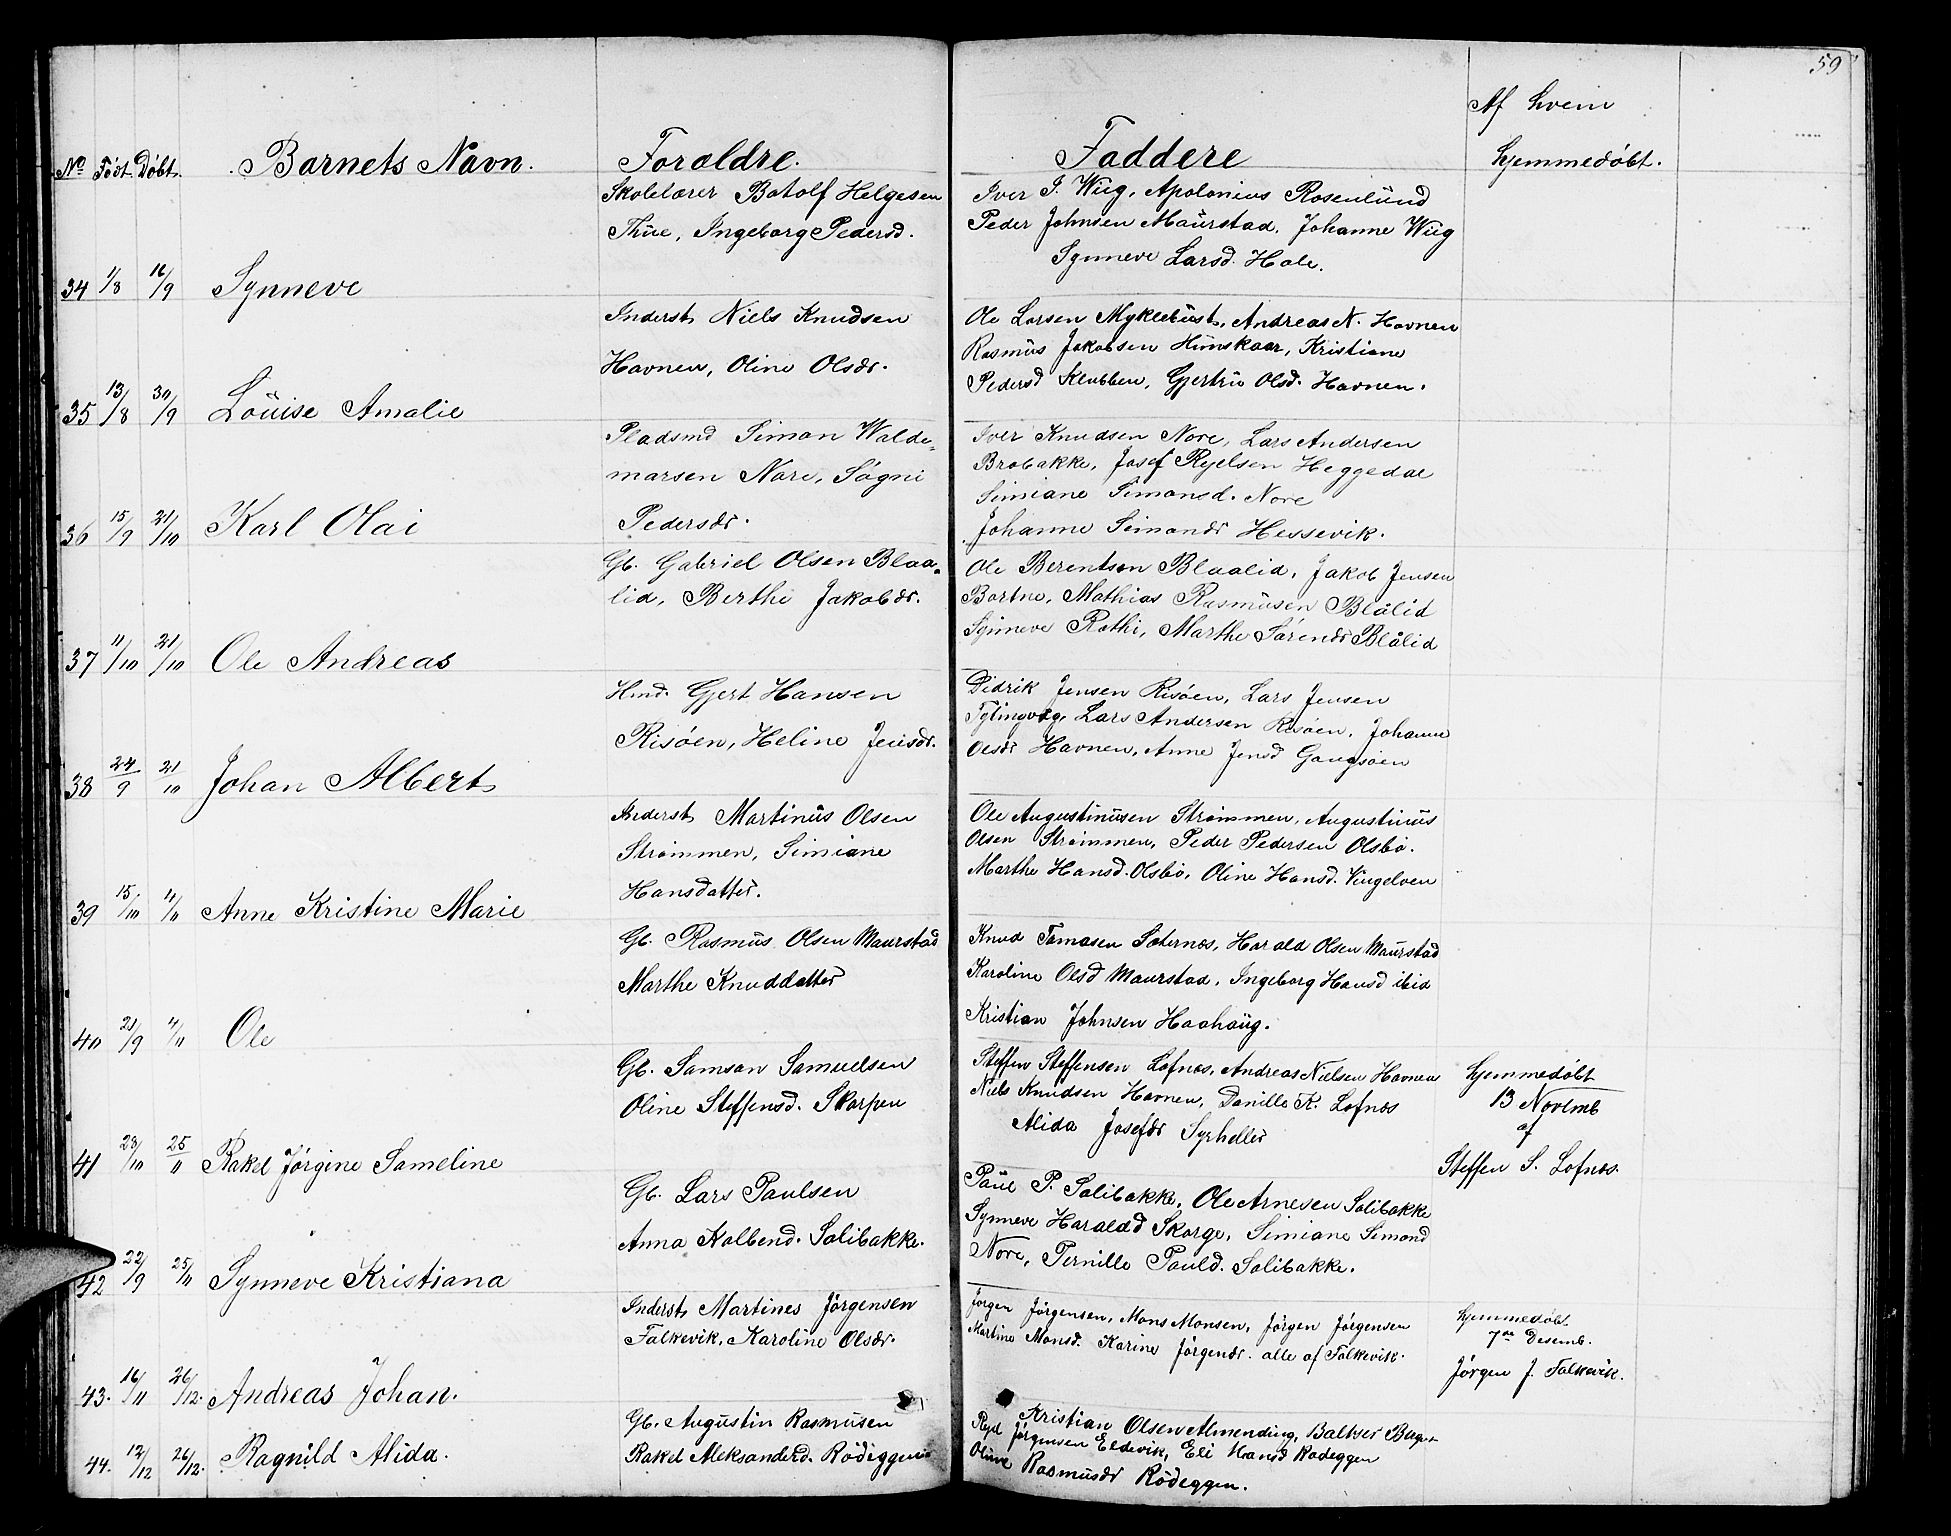 59
Af hvem
No Föðt Döbt. Barnets Navn. Foroldre. Faddere hjemmedöbt.
Skolelærer Botolf Helgesen
Thue, Ingeborg Pedersd.
34 1/8 16/9 Synneve
Iver I. Wiig, Apolonius Rosenlund
Peder Johnsen Maurstad, Johanne Wiig
Synneve Larsd. Hole.
Inderst Niels Knudsen
Havnen, Oline Olsdr.
35 13/8 30/9 Louise Amalie
Ole Larsen Myklebust, Andreas N. Havnen
Rasmus Jakobsen Humskaar, Kristiane
Pedersd Klubben, Gjertru Olsd. Havnen.
Pladsmd Simon Walde-
marsen Nore, Sögni
Pedersdr.
36 15/9 21/10 Karl Olai
Iver Knudsen Nore, Lars Andersen
Brobakke, Josef Ryelsen Heggedal
Simiane Simonsd. Nore
Johanne Simondr Hessevik.
Gb. Gabriel Olsen Blaa-
lid, Berthe Jakobdr.
37 11/10 21/10 Ole Andreas
Ole Berentsen Blaalid, Jakob Jensen
Bortne, Mathias Rasmusen Blålid
Synneve Rathi, Marthe Sörendr Blålid
Hmd. Gjert Hansen
Risöen, Heline Jensdr.
38 24/9 21/10 Johan Albert
Didrik Jensen Risöen, Lars Jensen
Tytingvåg, Lars Andersen Risöen, Johanne
Olsdr Havnen, Anne Jensd Gangsöen
Inderst Martinus Olsen
Strömmen, Simiane
Hansdatter.
39 15/10 4/11 Anne Kristine Marie
Ole Augustinusen Strömmen, Augustinus
Olsen Strömmen, Peder Pedersen Olsbö.
Marthe Hansd. Olsbö, Oline Hansd. Vingelven
Gb. Rasmus Olsen Maurstad
Marthe Knuddatter
40 21/9 4/11 Ole
Knud Tomasen Sæternæs, Harald Olsen Maurstad
Karoline Olsd Maurstad, Ingeborg Hansd ibid
Kristian Johnsen Haahaug.
Gb. Samson Samuelsen
Oline Steffensd. Skarpen
41 28/10 25/11 Rakel Jörgine Sameline
Steffen Steffensen Lofnæs, Andreas Nielsen Havnen
Niels Knudsen Havnen, Danille K. Lofnæs
Alida Josefdr Syrheller
hjemmedöbt
13 Novemb
af
Steffen S. Lofnæs.
Gb. Lars Paulsen
Anna Kolbend. Solibakke.
42 22/9 25/11 Synneve Kristiana
Paul P. Solibakke, Ole Arnesen Solibakke
Synneve Haraldd Skorge, Simiane Simond
Nore, Pernille Pauld. Solibakke.
Inderst Martines Jörgensen
Falkevik, Karoline Olsdr.
43. 16/11 26/12. Andreas Johan.
Jörgen Jörgensen, Mons Monsen, Jörgen Jörgensen
Martine Monsd. Karine Jörgendr. alle af Falkevik.
hjemmedöbt
7de Desemb.
Jörgen J. Falkevik.
Gb. Augustin Rasmusen
Rakel Aleksanderd. Rödeggen
44. 12/12 26/12. Ragnild Alida.
Kristian Olsen Almending, Baltser
Ryel Jörgensen Eldevik, Eli Hansd Rödeggen
Oline Rasmusdr Rödeggen.